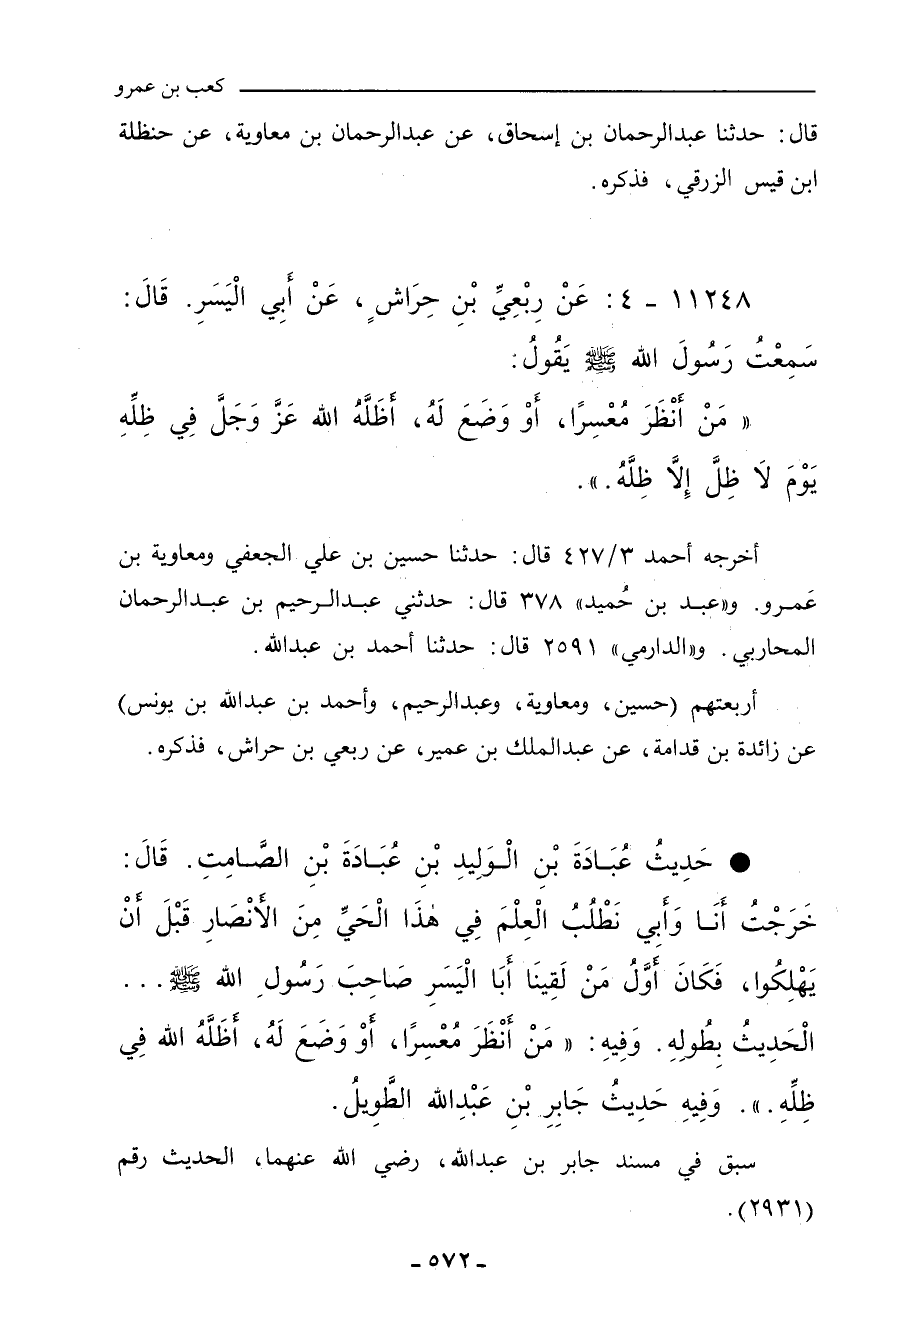 كعب بن عمرو
قال: حدثنا عبدالرحمان بن إسحاق، عن عبدالرحمان بن معاوية، عن حنظلة
ابن قيس الزرقي، فذكره.
١١٢٤٨ - ٤: عَنْ رِبْعِيِّ بْنِ حِرَاشٍ، عَنْ أَبِي الْيَسَرِ. قَالَ:
سَمِعْتُ رَسُولَ الله ﷺ يَقُولُ:
« مَنْ أَنْظَرَ مُعْسِرًا، أَوْ وَضَعَ لَهُ، أَظَلَّهُ الله عَزَّ وَجَلَّ فِي ظِلِّهِ
يَوْمَ لَا ظِلَّ إِلَّا ظِلُّهُ.».
أخرجه أحمد ٤٢٧/٣ قال: حدثنا حسين بن علي الجعفي ومعاوية بن
عَمرو. و«عبد بن حُميد» ٣٧٨ قال: حدثني عبدالرحيم بن عبدالرحمان
المحاربي. و«الدارمي» ٢٥٩١ قال: حدثنا أحمد بن عبدالله.
أربعتهم (حسين، ومعاوية، وعبدالرحيم، وأحمد بن عبدالله بن يونس)
عن زائدة بن قدامة، عن عبدالملك بن عمير، عن ربعي بن حراش، فذكره.
● حَدِيثُ عُبَادَةَ بْنِ الْوَلِيدِ بْنِ عُبَادَةَ بْنِ الصَّامِتِ. قَالَ:
خَرَجْتُ أَنَا وَأَبِي نَطْلُبُ الْعِلْمَ فِي هٰذَا الْحَيِّ مِنَ الْأَنْصَارِ قَبْلَ أَنْ
يَهْلِكُوا، فَكَانَ أَوَّلُ مَنْ لَقِينَا أَبَا الْيَسَرِ صَاحِبَ رَسُولِ الله ﷺ...
الْحَدِيثُ بِطُولِهِ. وَفِيهِ: « مَنْ أَنْظَرَ مُعْسِرًا، أَوْ وَضَعَ لَهُ، أَظَلَّهُ الله فِي
ظِلِّهِ.». وَفِيهِ حَدِيثُ جَابِرِ بْنِ عَبْدِالله الطَّوِيلُ.
سبق في مسند جابر بن عبدالله، رضي الله عنهما، الحديث رقم
(٢٩٣١).
- ٥٧٢ -